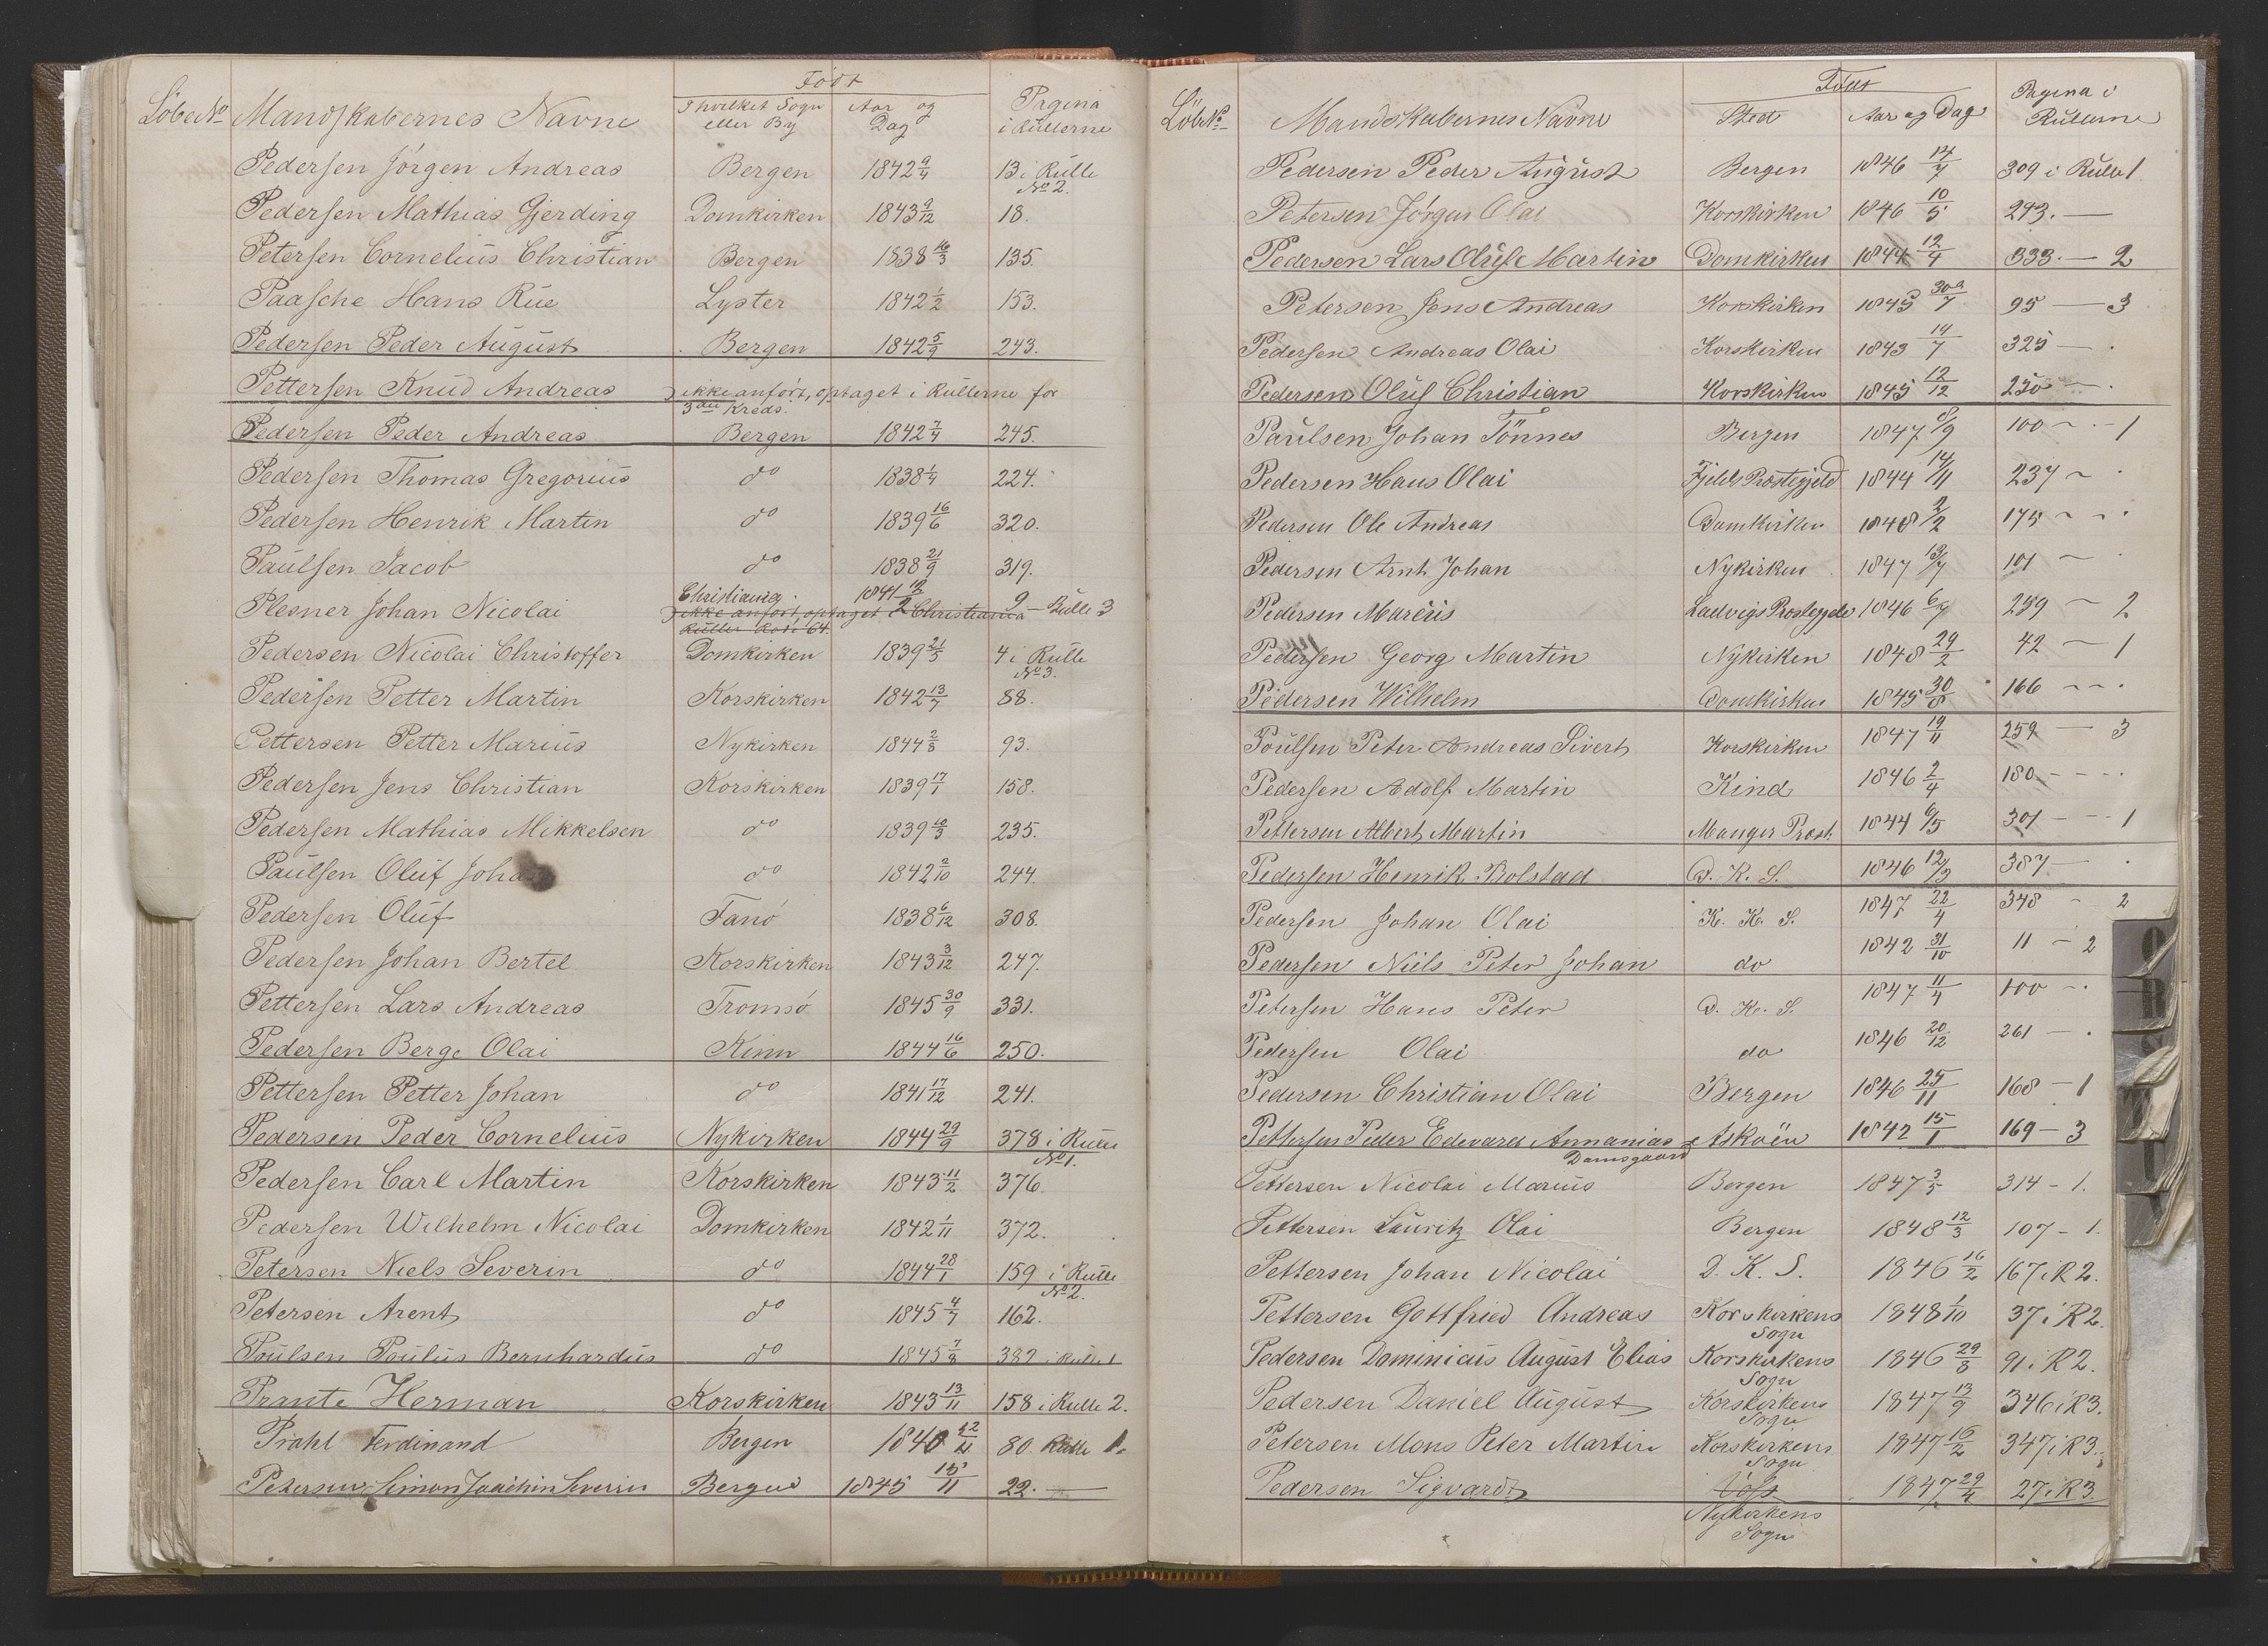 Født
LöbeNo Mandskabernes Navne I hvilket Sogn eller By Aar og Dag Pagina i Rullerne
Pedersen Jörgen Andreas Bergen 1842 9/4 13 i Rulle No 2.
Pedersen Mathias Gjerding Domkirken 1843 9/12 18.
Petersen Cornelius Christian Bergen 1838 16/3 135.
Paasche Hans Rue Lyster 1842 1/2 153.
Pedersen Peder August Bergen 1842 5/9 243.
Pettersen Knud Andreas ikke anfört, optaget i Rullerne for
3die Kreds.
Pedersen Peder Andreas Bergen 1842 7/4 245.
Pedersen Thomas Gregorius do 1838 1/4 224.
Pedersen Henrik Martin do 1839 16/6 320.
Paulsen Jacob do 1838 21/9 319.
Christiania. 1841
Plesner Johan Nicolai ikke anfört, optaget i Christiania 9 - Rulle 3
Ruller
Pedersen Nicolai Christoffer Domkirken 1839 21/5 4 i Rulle No 3.
Pedersen Petter Martin Korskirken 1842 13/7 88.
Pettersen Petter Marius Nykirken 1844 2/8 93.
Pedersen Jens Christian Korskirken 1839 17/1 158.
Pedersen Mathias Mikkelsen do 1839 10/3 235.
Paulsen Oluf Johan do 1842 2/10 244.
Pedersen Oluf Fanö 1838 6/12 308.
Pedersen Johan Bertel Korskirken 1843 3/12 247.
Pettersen Lars Andreas Tromsö 1845 30/9 331.
Pedersen Berge Olai Kinn 1844 16/6 250.
Pettersen Petter Johan do 1841 17/12 241.
Pedersen Peder Cornelius Nykirken 1844 29/9 378 i Rulle No 1.
Pedersen Carl Martin Korskirken 1843 11/2 376.
Pedersen Wilhelm Nicolai Domkirken 1842 1/11 372.
Petersen Niels Severin do 1844 28/1 159 i Rulle No 2.
Petersen Arent do 1845 4/7 162.
Poulsen Poulus Bernhardus do 1845 7/8 382 i Rulle 1
Prante Herman Korskirken 1843 13/11 158 i Rulle 2.
Prahl Ferdinand Bergen 1840 80. Rulle 1.
Petersen Simon Joachim Severin Bergen 1845 15/11 22. —
Født
LöbNo Mandskabernes Navne Sted Aar og Dag Pagina i Rullerne
Pedersen Peder August Bergen 1846 14/7 309 i Rulle 1
Petersen Jörgen Olai Korskirken 1846 10/5 293. —
Pedersen Lars Oluf Martin Domkirken 1844 12/4 333. — 2
Petersen Jens Andreas Korskirken 1845 30/7 95 — 3
Pedersen Andreas Olai Korskirken 1843 14/7 325 — .
Pedersen Oluf Christian Korskirken 1845 12/12 250 — .
Paulsen Johan Tönnes Bergen 1847 8/9 100 - . - 1
Pedersen Hans Olai Fjelds Præstegjeld 1844 14/11 237 - .
Pedersen Ole Andreas Domkirken 1848 2/2 175 - - .
Pedersen Arnt Johan Nykirken 1847 13/7 101 - .
Pedersen Marcus Ladvigs Prestegjeld 1846 6/7 259 - 2
Pedersen Georg Martin Nykirken 1848 29/2 42 - 1
Pedersen Wilhelm Domkirken 1845 30/8 166 - - .
Poulsen Peter Andreas Sivert Korskirken 1847 19/11 259 — 3
Pedersen Adolf Martin Kind 1846 2/4 180 - - - .
Pettersen Albert Martin Manger Præst. 1844 6/5 301 - - 1
Pedersen Henrik Bolstad D. K. S. 1846 12/9 387 — .
Pedersen Johan Olai K. K. S. 1847 22/4 348 - 2
Pedersen Niels Peter Johan do 1842 31/10 11 - 2
Petersen Hans Peter D. K. S. 1847 11/4 100 - .
Pedersen Olai do 1846 20/12 261 — .
Pedersen Christian Olai Bergen 1846 25/11 168 - 1
Pettersen Peder Edvard Annanias Damsgaard Askoën 1842 15/1 169 - 3
Pettersen Nicolai Marius Bergen 1847 3/5 314 - 1.
Pettersen Lauritz Olai Bergen 1848 12/3 107 - 1.
Pettersen Johan Nicolai D. K. S. 1846 16/2 167 i R 2.
Pettersen Gottfried Andreas Korskirkens Sogn 1848 1/10 37 i R 2.
Pedersen Dominicus August Elias Korskirkens Sogn 1846 29/8 91 i R 2.
Pedersen Daniel August Korskirkens Sogn 1847 13/9 346 i R 3.
Petersen Mons Peter Martin Korskirkens Sogn 1847 16/2 347 i R 3.
Pedersen Sigvard 1847 29/4 27 i R 3.
Nykirkens
Sogn